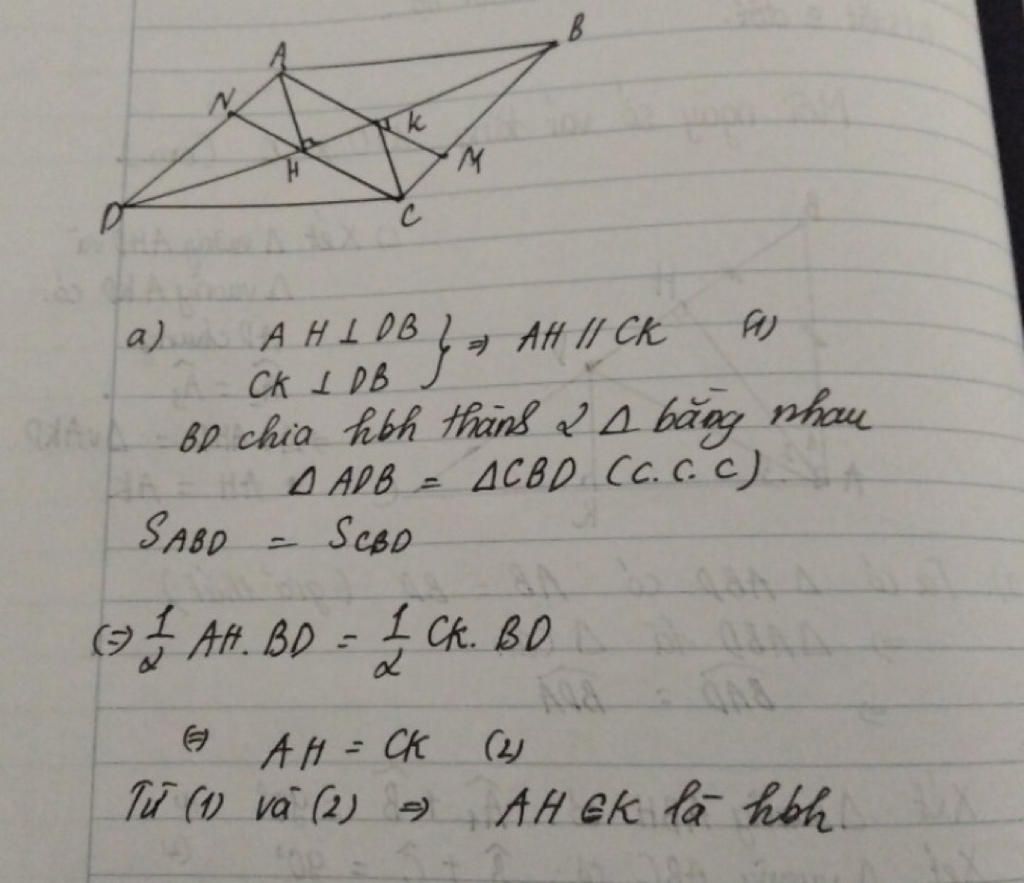 A
B
N
K
H
M
D
C
a) AH ⊥ DB
CK ⊥ DB } => AH // CK (1)
BD chia hbh thành 2 Δ bằng nhau
Δ ADB = ΔCBD (C.C.C)
SABD = SCBD
(=> 1/2 AH. BD = 1/2 CK. BD
(=> AH = CK (2)
Từ (1) và (2) => AHCK là hbh.